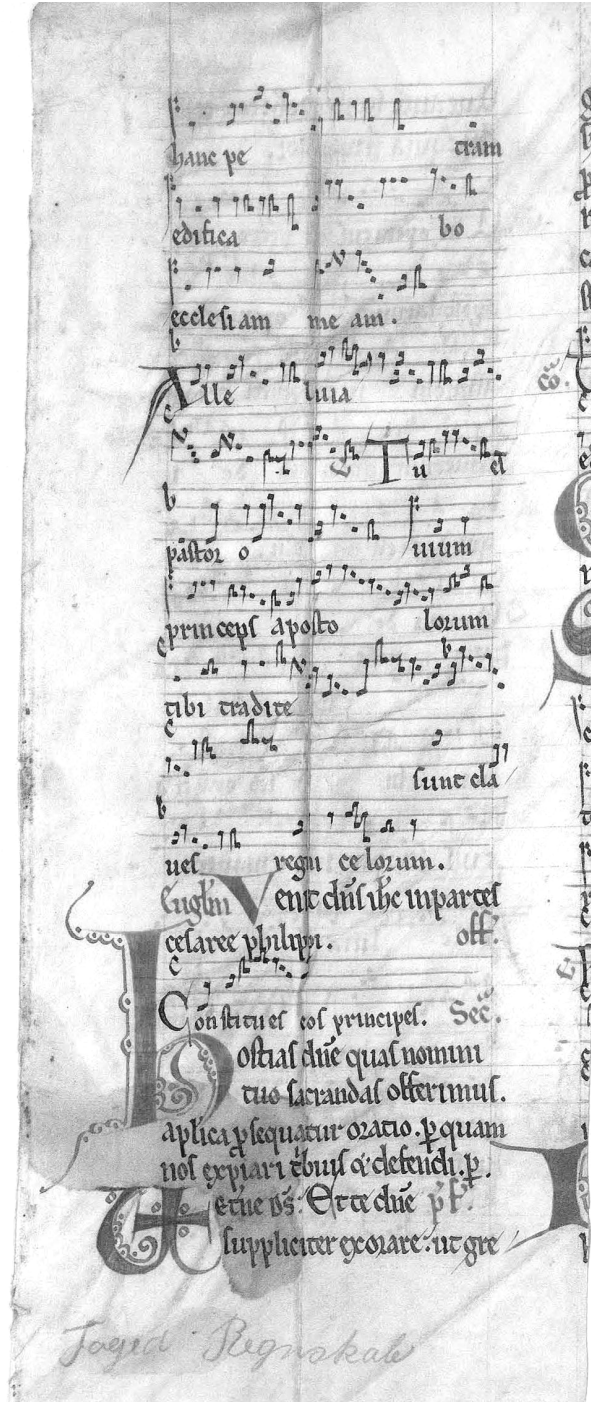 hanc pe tram
edifica bo
ecclesi am me am.
Alle luia
Tu es
pastor o uium
princeps aposto lorum
tibi tradite
sunt cla
ues regni ce lorum.
Venit dn̄s ih̄c inpartes
cesaree philippi. off.
Constitues eos principes. Sec̄.
Hostias dn̄e quas nomini
tuo sacrandas offerimus.
ap̄lica p̱sequatur oratio. p̱ quam
nos expiari t͛buis & defendi. p̱.
Et te dn̄e
suppliciter exorare. ut gre